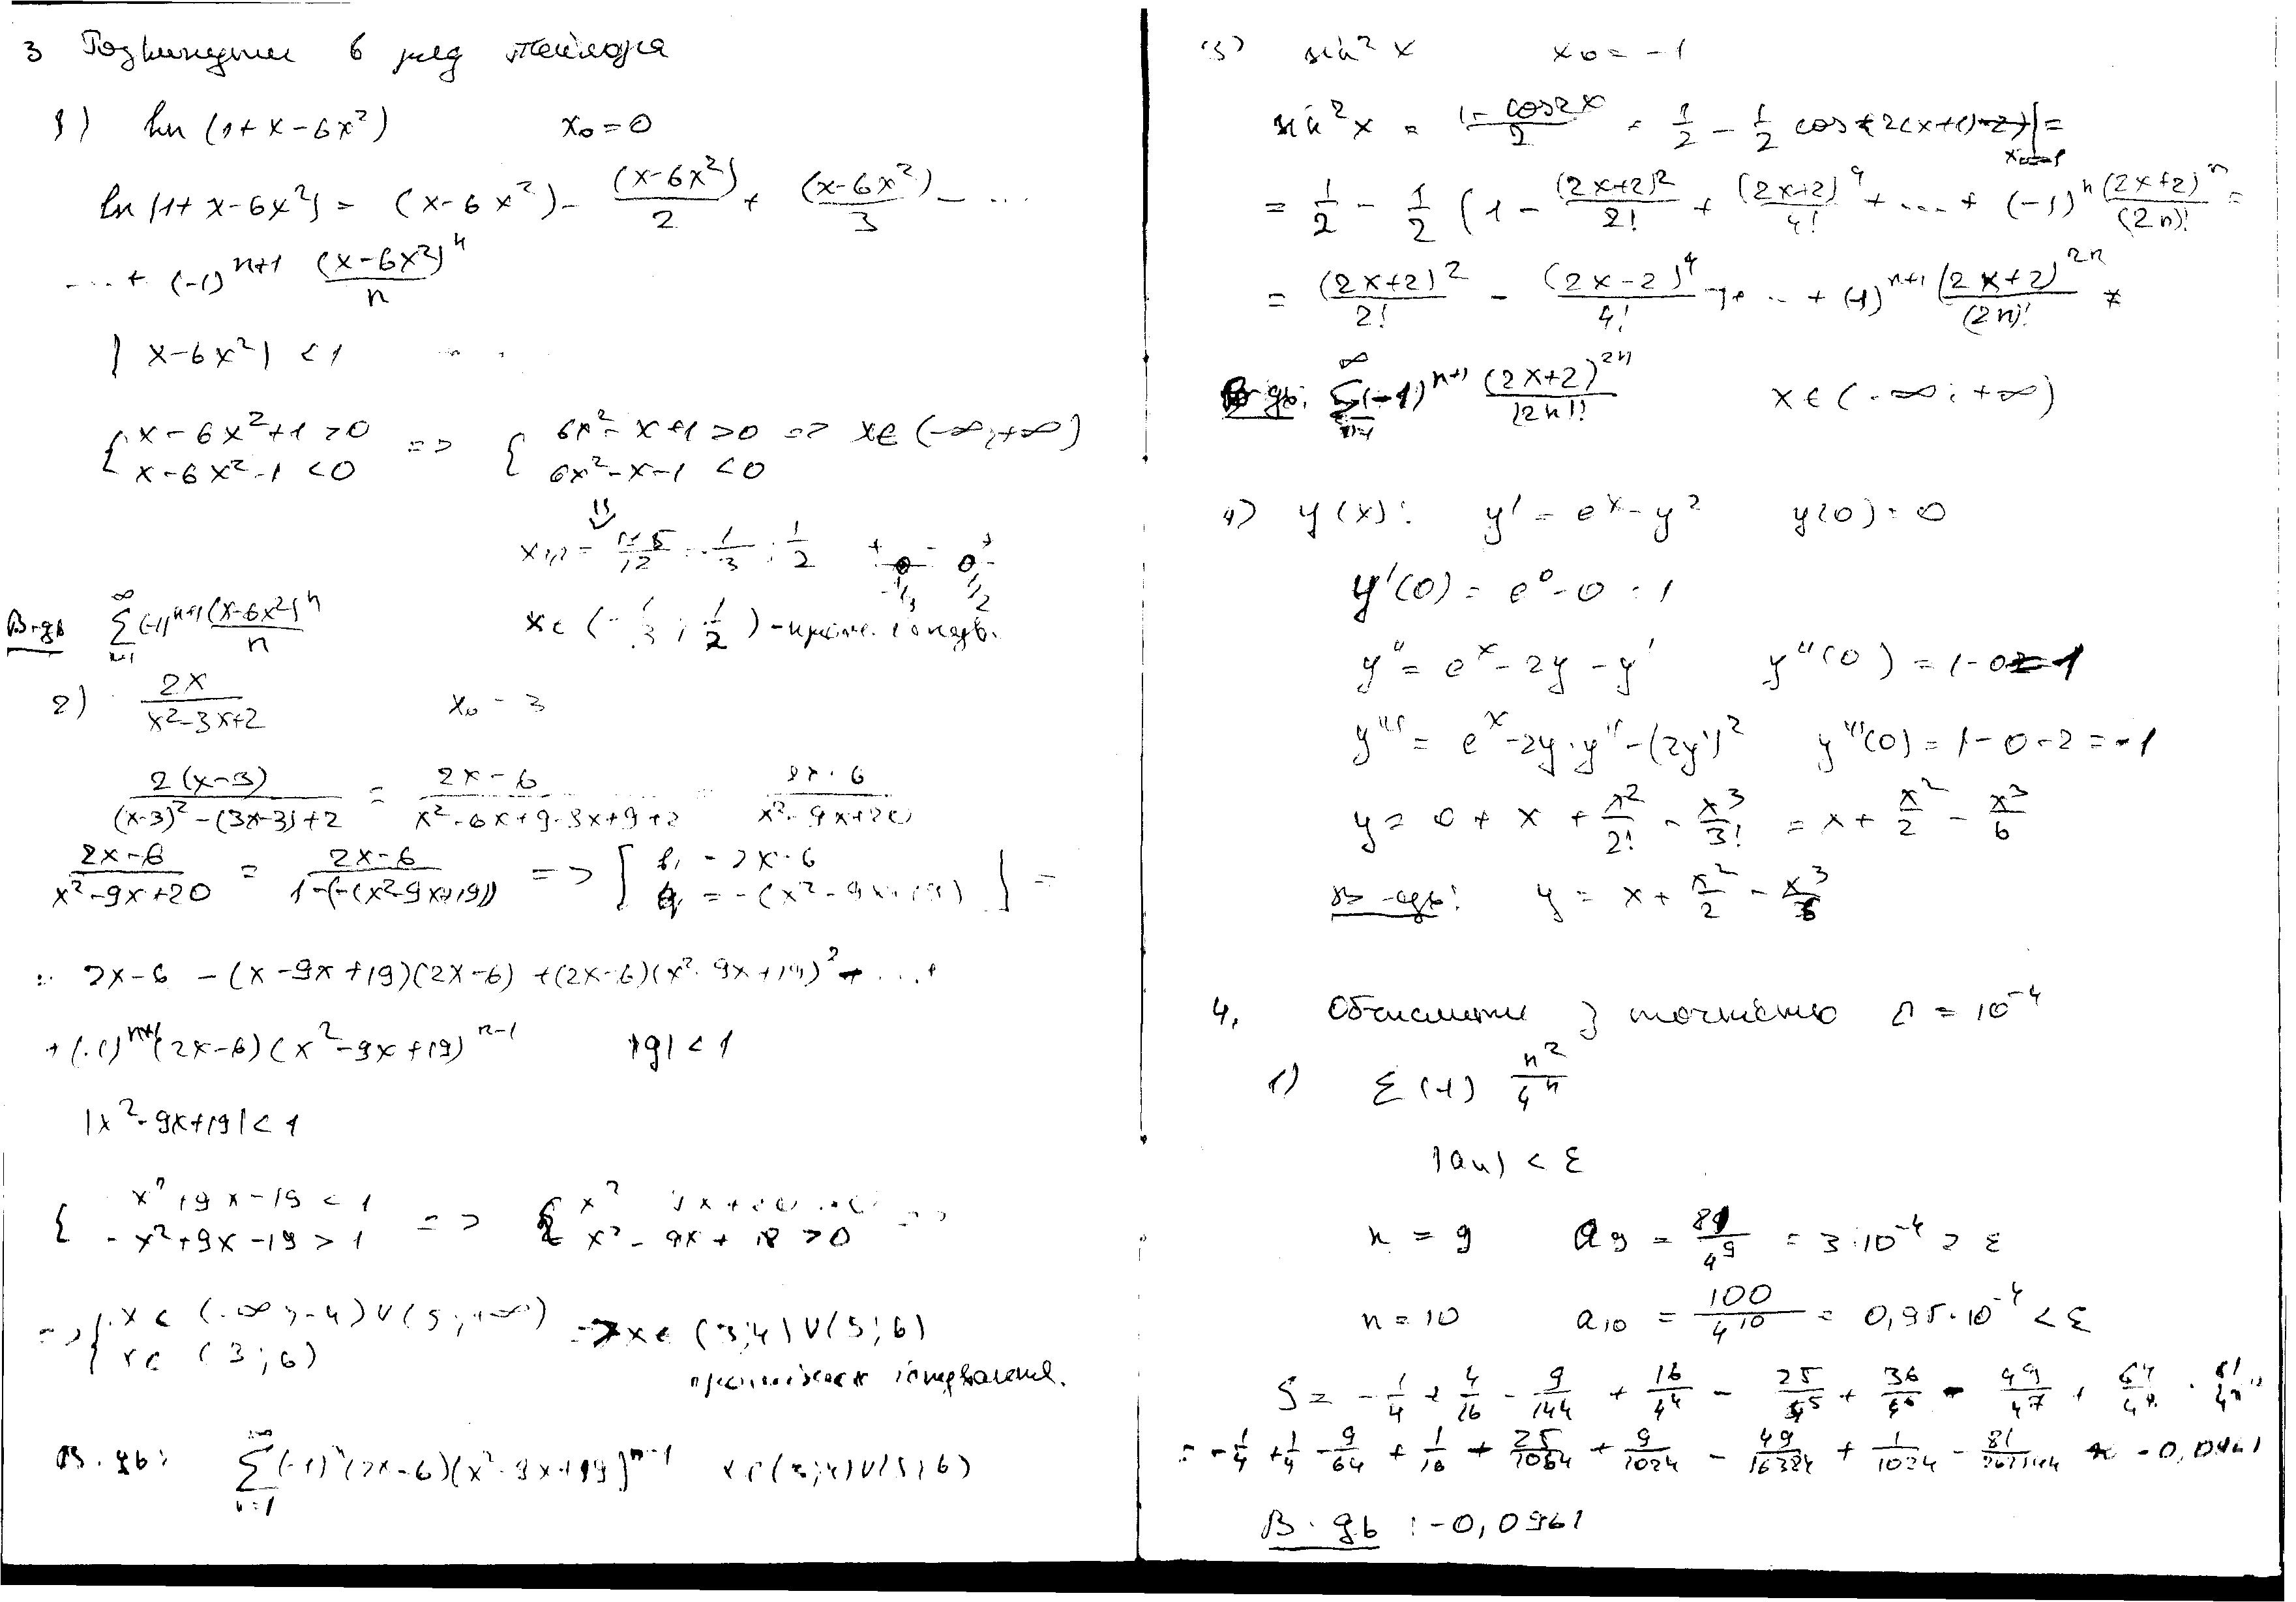 3 Розвинути в ряд Тейлора
1) ln (1+x-6x²) x₀=0
ln(1+x-6x²) = (x-6x²) - (x-6x²)/2 + (x-6x²)/3 - ...
... + (-1)ⁿ⁺¹ (x-6x²)ⁿ/n
|x-6x²| < 1
{ x-6x²+1>0 => { 6x²-x+1>0 => x∈(-∞;+∞)
x-6x²-1<0 6x²-x-1<0
x₁,₂ = 1±5/12 = -1/3; 1/2 + - +
-1/3 1/2
В-дь ∑ⁿ⁼¹^∞ (-1)ⁿ⁺¹ (x-6x²)ⁿ/n x∈(-1/3; 1/2) -
2) 2x/(x²-3x+2) x₀ = 3
2(x-3)/((x-3)²-(3x-3)+2) = (2x-6)/(x²-6x+9-3x+9+2) = (2x-6)/(x²-9x+20)
(2x-6)/(x²-9x+20) = (2x-6)/(1-(-(x²-9x+19))) => [ b₁ = 2x-6
q = -(x²-9x+19) ] =
= 2x-6 - (x-9x+19)(2x-6) + (2x-6)(x²-9x+19)² + ... +
+ (-1)ⁿ⁺¹(2x-6)(x²-9x+19)ⁿ⁻¹ |q| < 1
|x²-9x+19| < 1
{ x²+9x-19 < 1 => { x² =>
-x²+9x-19 > 1 x²-9x+18 >0
=> { x∈(-∞;-4)∪(5;+∞) => x∈(3;4)∪(5;6)
x∈(3;6)
проміжок
В-дь: ∑ⁿ⁼¹^∞ (-1)ⁿ(2x-6)(x²-9x+19)ⁿ⁻¹ x∈(3;4)∪(5;6)
3) sin²x x₀ = -1
sin²x = (1-cos2x)/2 = 1/2 - 1/2 cos(2(x+1)-2)| =
= 1/2 - 1/2 (1 - (2x+2)²/2! + (2x+2)⁴/4! + ... + (-1)ⁿ (2x+2)ⁿ/(2n)! =
= (2x+2)²/2! - (2x-2)⁴/4! + ... + (-1)ⁿ⁺¹ (2x+2)²ⁿ/(2n)!
В-дь: ∑ⁿ⁼¹^∞ (-1)ⁿ⁺¹ (2x+2)²ⁿ/(2n)! x∈(-∞;+∞)
4) y(x): y' = eˣ-y² y(0)=0
y'(0) = e⁰-0 = 1
y'' = eˣ - 2y - y' y''(0) = 1-0 = 1
y''' = eˣ-2y·y''-(2y')² y'''(0) = 1-0-2 = -1
y = 0 + x + x²/2! - x³/3! = x + x²/2 - x³/6
В-дь: y = x + x²/2 - x³/6
4. Обчислити з точністю ε = 10⁻⁴
1) Σ(-1) n²/4ⁿ
|aₙ| < ε
n = 9 a₉ = 81/4⁹ = 3·10⁻⁴ > ε
n = 10 a₁₀ = 100/4¹⁰ = 0,95·10⁻⁴ < ε
S = -1/4 + 4/16 - 9/144 + 16/4⁴ - 25/4⁵ + 36/4⁶ - 49/4⁷ + 64/4⁸ - 81/4⁹ =
= -1/4 + 1/4 - 9/64 + 1/16 - 25/1064 + 9/1024 - 49/16384 + 1/1024 - 81/262144 ≈ -0,0961
В-дь: -0,0961